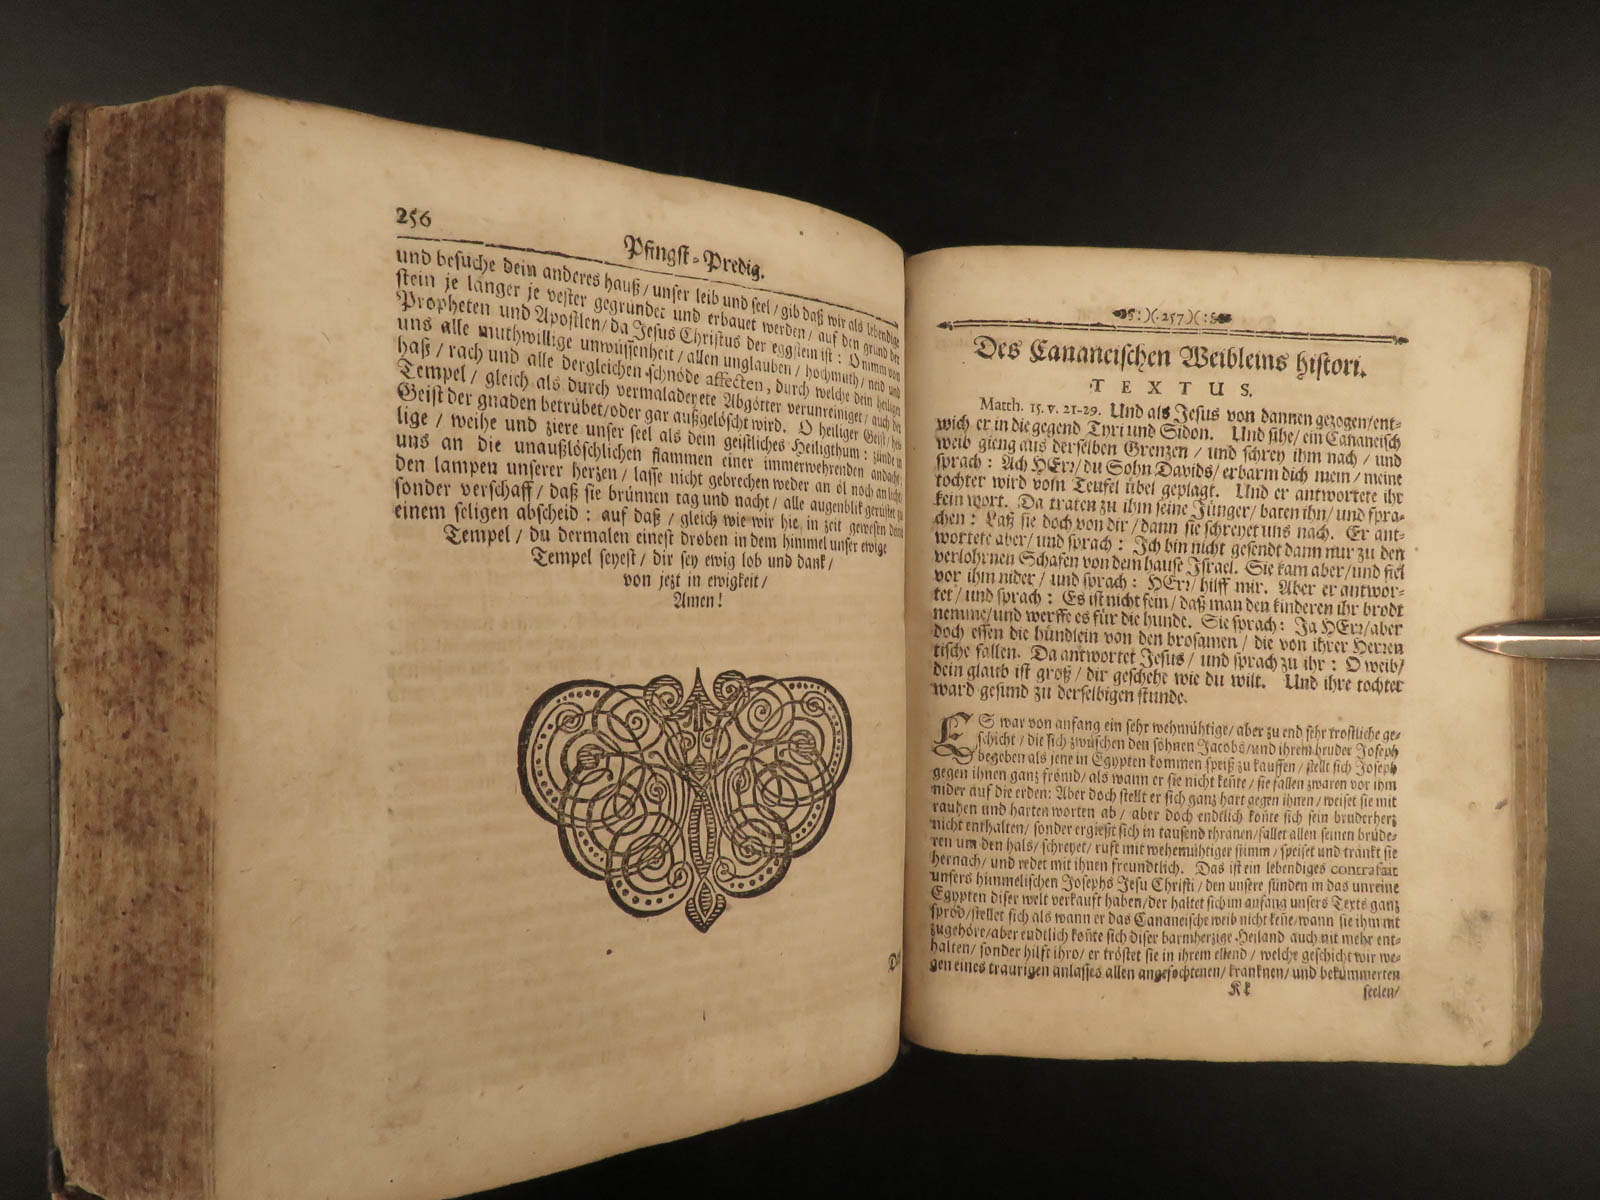 256
Pfingst-Predig.
und besuche dein anderes hauß/ unser leib und seel/ gib daß wir als lebendige
stein je länger je vester gegründet und erbauet werden/ auf den grund der
Propheten und Apostlen/ da Jesus Christus der eggstein ist: O nimm von
uns alle muthwillige unwüssenheit/ allen unglauben/ hochmuth/ neid und
haß/ rach und alle dergleichen schnöde affecten, durch welche dein heiliger
Tempel/ gleich als durch vermaladeyete Abgötter verunreiniget/ auch der
Geist der gnaden betrübet/ oder gar außgelöscht wird. O heiliger Geist/ hey-
lige/ weihe und ziere unser seel als dein geistliches Heiligthum: zünde in
uns an die unaußlöschlichen flammen einer immerwehrenden andacht:
den lampen unserer herzen/ lasse nicht gebrechen weder an öl noch an liecht/
sonder verschaff/ daß sie brünnen tag und nacht/ alle augenblik gerüstet zu
einem seligen abscheid: auf daß/ gleich wie wir hie in zeit gewesen deine
Tempel/ du dermalen einest droben in dem himmel unser ewige
Tempel seyest/ dir sey ewig lob und dank/
von jezt in ewigkeit/
Amen!
257
Des Cananeischen Weibleins histori.
TEXTUS.
Matth. 15. v. 21-29. Und als Jesus von dannen gezogen/ ent-
wich er in die gegend Tyri und Sidon. Und sihe/ ein Cananeisch
weib gieng aus derselben Grenzen/ und schrey ihm nach/ und
sprach: Ach HErr/ du Sohn Davids/ erbarm dich mein/ meine
tochter wird vom Teufel übel geplagt. Und er antwortete ihr
kein wort. Da traten zu ihm seine Jünger/ baten ihn/ und spra-
chen: Laß sie doch von dir/ dann sie schreyet uns nach. Er ant-
wortete aber/ und sprach: Ich bin nicht gesendt dann nur zu den
verlohrnen Schafen von dem hause Israel. Sie kam aber/ und fiel
vor ihm nider/ und sprach: HErr/ hilff mir. Aber er antwor-
tet/ und sprach: Es ist nicht fein/ daß man den kinderen ihr brodt
nemme/ und werffe es für die hunde. Sie sprach: Ja HErr/ aber
doch essen die hündlein von den brosamen/ die von ihrer Herren
tische fallen. Da antwortet Jesus/ und sprach zu ihr: O weib/
dein glaub ist groß/ dir geschehe wie du wilt. Und ihre tochter
ward gesund zu derselbigen stunde.
ES war von anfang ein sehr wehmühtige/ aber zu end sehr trostliche ge-
schicht/ die sich zwüschen den söhnen Jacobs/ und ihrem bruder Joseph
begeben als jene in Egypten kommen speiß zu kauffen/ stellt sich Joseph
gegen ihnen ganz frömd/ als wann er sie nicht keñte/ sie fallen zwaren vor ihm
nider auf die erden: Aber doch stellt er sich ganz hart gegen ihnen/ weiset sie mit
rauhen und harten worten ab/ aber doch endtlich koñte sich sein bruderherz
nicht enthalten/ sonder ergießt sich in tausend thränen/ fallet allen seinen brüde-
ren um den hals/ schreyet/ ruft mit wehemühtiger stimm/ speiset und tränkt sie
hernach/ und redet mit ihnen freundtlich. Das ist ein lebendiges contrafait
unsers himmelischen Josephs Jesu Christi/ den unsere sünden in das unreine
Egypten diser welt verkauft haben/ der haltet sich im anfang unsers Texts ganz
spröd/ stellet sich als wann er das Cananeische weib nicht keñe/ wann sie ihm nit
zugehöre/ aber endtlich koñte sich diser barmherzige Heiland auch nit mehr ent-
halten/ sonder hilft ihro/ er tröstet sie in ihrem ellend/ welche geschicht wir we-
gen eines traurigen anlasses allen angefochtenen/ kranknen/ und bekümmerten
Kk
seelen/